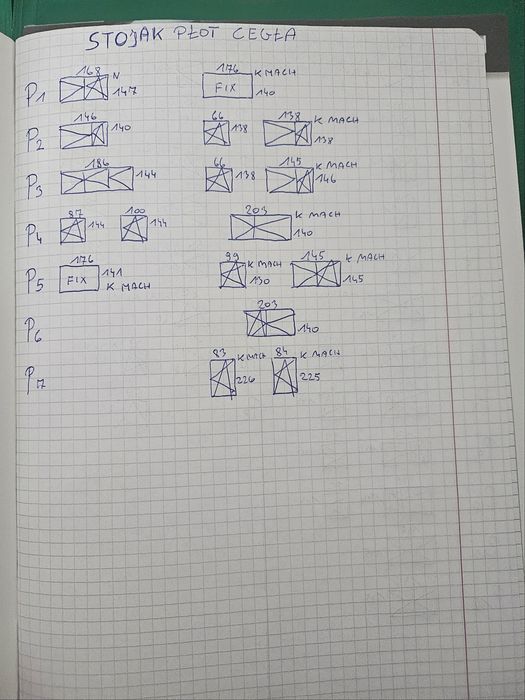 STOJAK PŁOT CEGŁA
P1 168 N 147 176 K MACH FIX 140
P2 146 140 66 138 138 K MACH 138
P3 186 144 66 138 145 K MACH 146
P4 87 144 100 144 203 K MACH 140
P5 176 FIX 141 K MACH 99 K MACH 130 145 K MACH 145
P6 203 140
P7 83 K MACH 226 84 K MACH 225